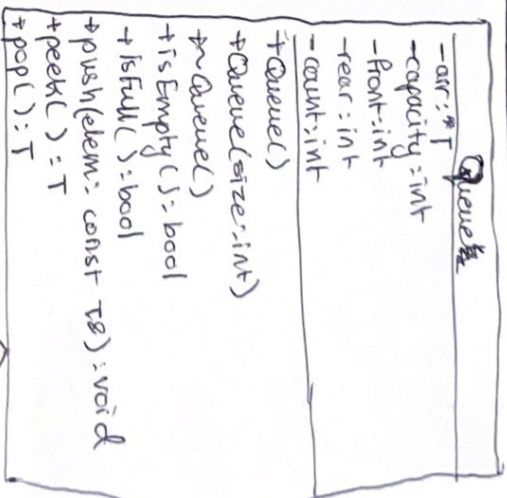 Queue
-arr: *T
-capacity: int
-front: int
-rear: int
-count: int
+Queue()
+Queue(size: int)
+~Queue()
+isEmpty(): bool
+isFull(): bool
+push(elem: const T&): void
+peek(): T
+pop(): T